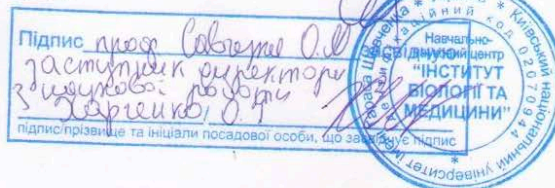 Підпис проф Савчука О.М
ЗАСВІДЧУЮ
заступник директора
з наукової роботи
Харченко О.І
підпис/прізвище та ініціали посадової особи, що засвідчує підпис
Київський національний
університет імені Тараса Шевченка
ідентифікаційний код 02070944
Навчально-
науковий центр
"ІНСТИТУТ
БІОЛОГІЇ ТА
МЕДИЦИНИ"